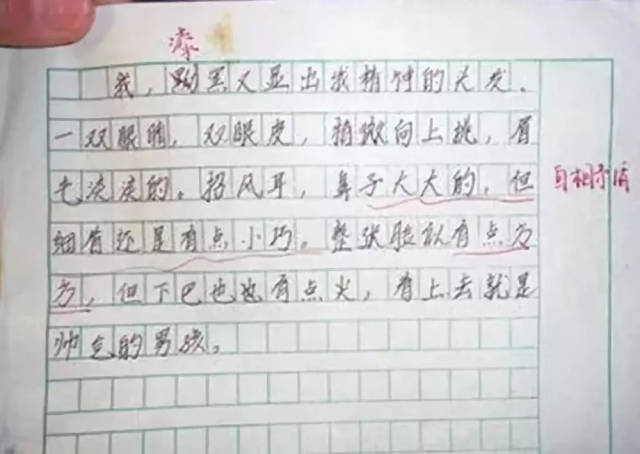 漆
我，黝黑又显出我精神的头发．
一双眼睛，双眼皮，稍微向上挑，眉
毛淡淡的。招风耳，鼻子大大的，但
细看还是有点小巧。整张脸以有点方
方，但下巴也也有点尖，看上去就是
帅气的男孩。
自相矛盾